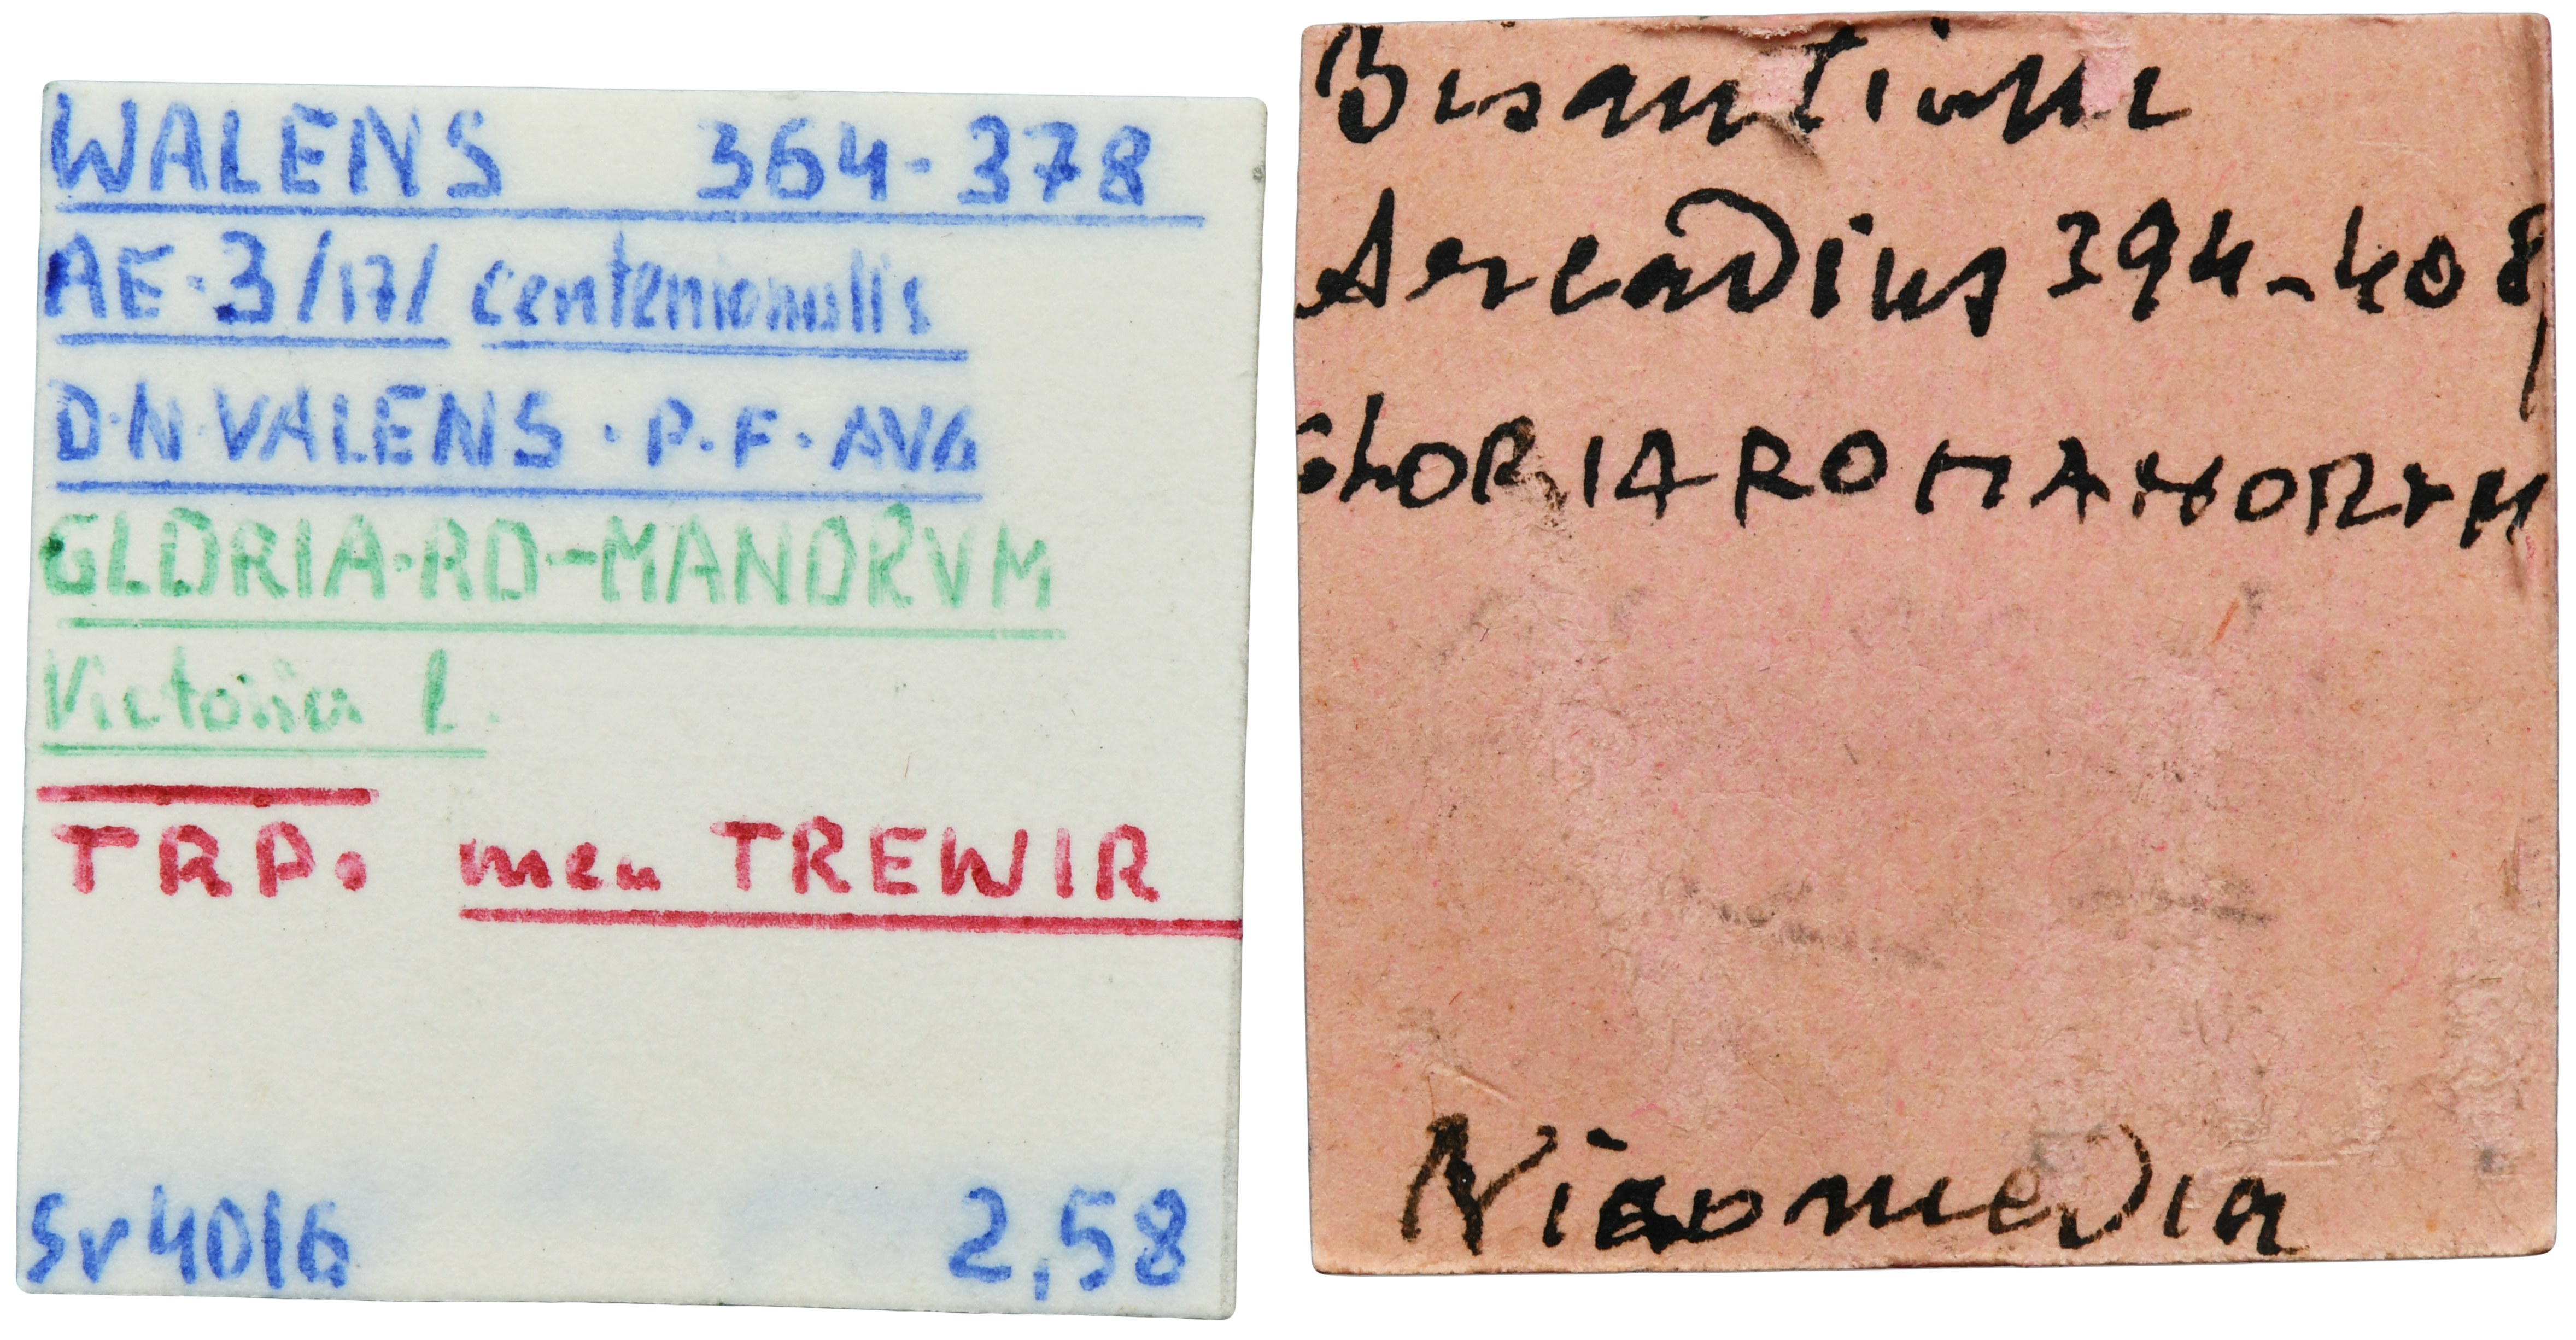 WALENS 364-378
AE·3/17/ centenionalis
D·N·VALENS·P.F·AVG
GLORIA·RO-MANORVM
Victoria l.
TRP. men TREWIR
Sr 4016 2,58
Arcadius 394-408
GLORIA ROMANORVM
Nicomedia